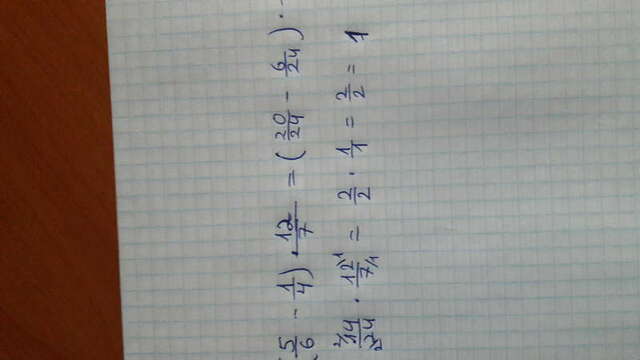 (5/6 - 1/4) · 12/7 = (20/24 - 6/24) ·
14/24 · 12/7 = 2/2 · 1/1 = 2/2 = 1